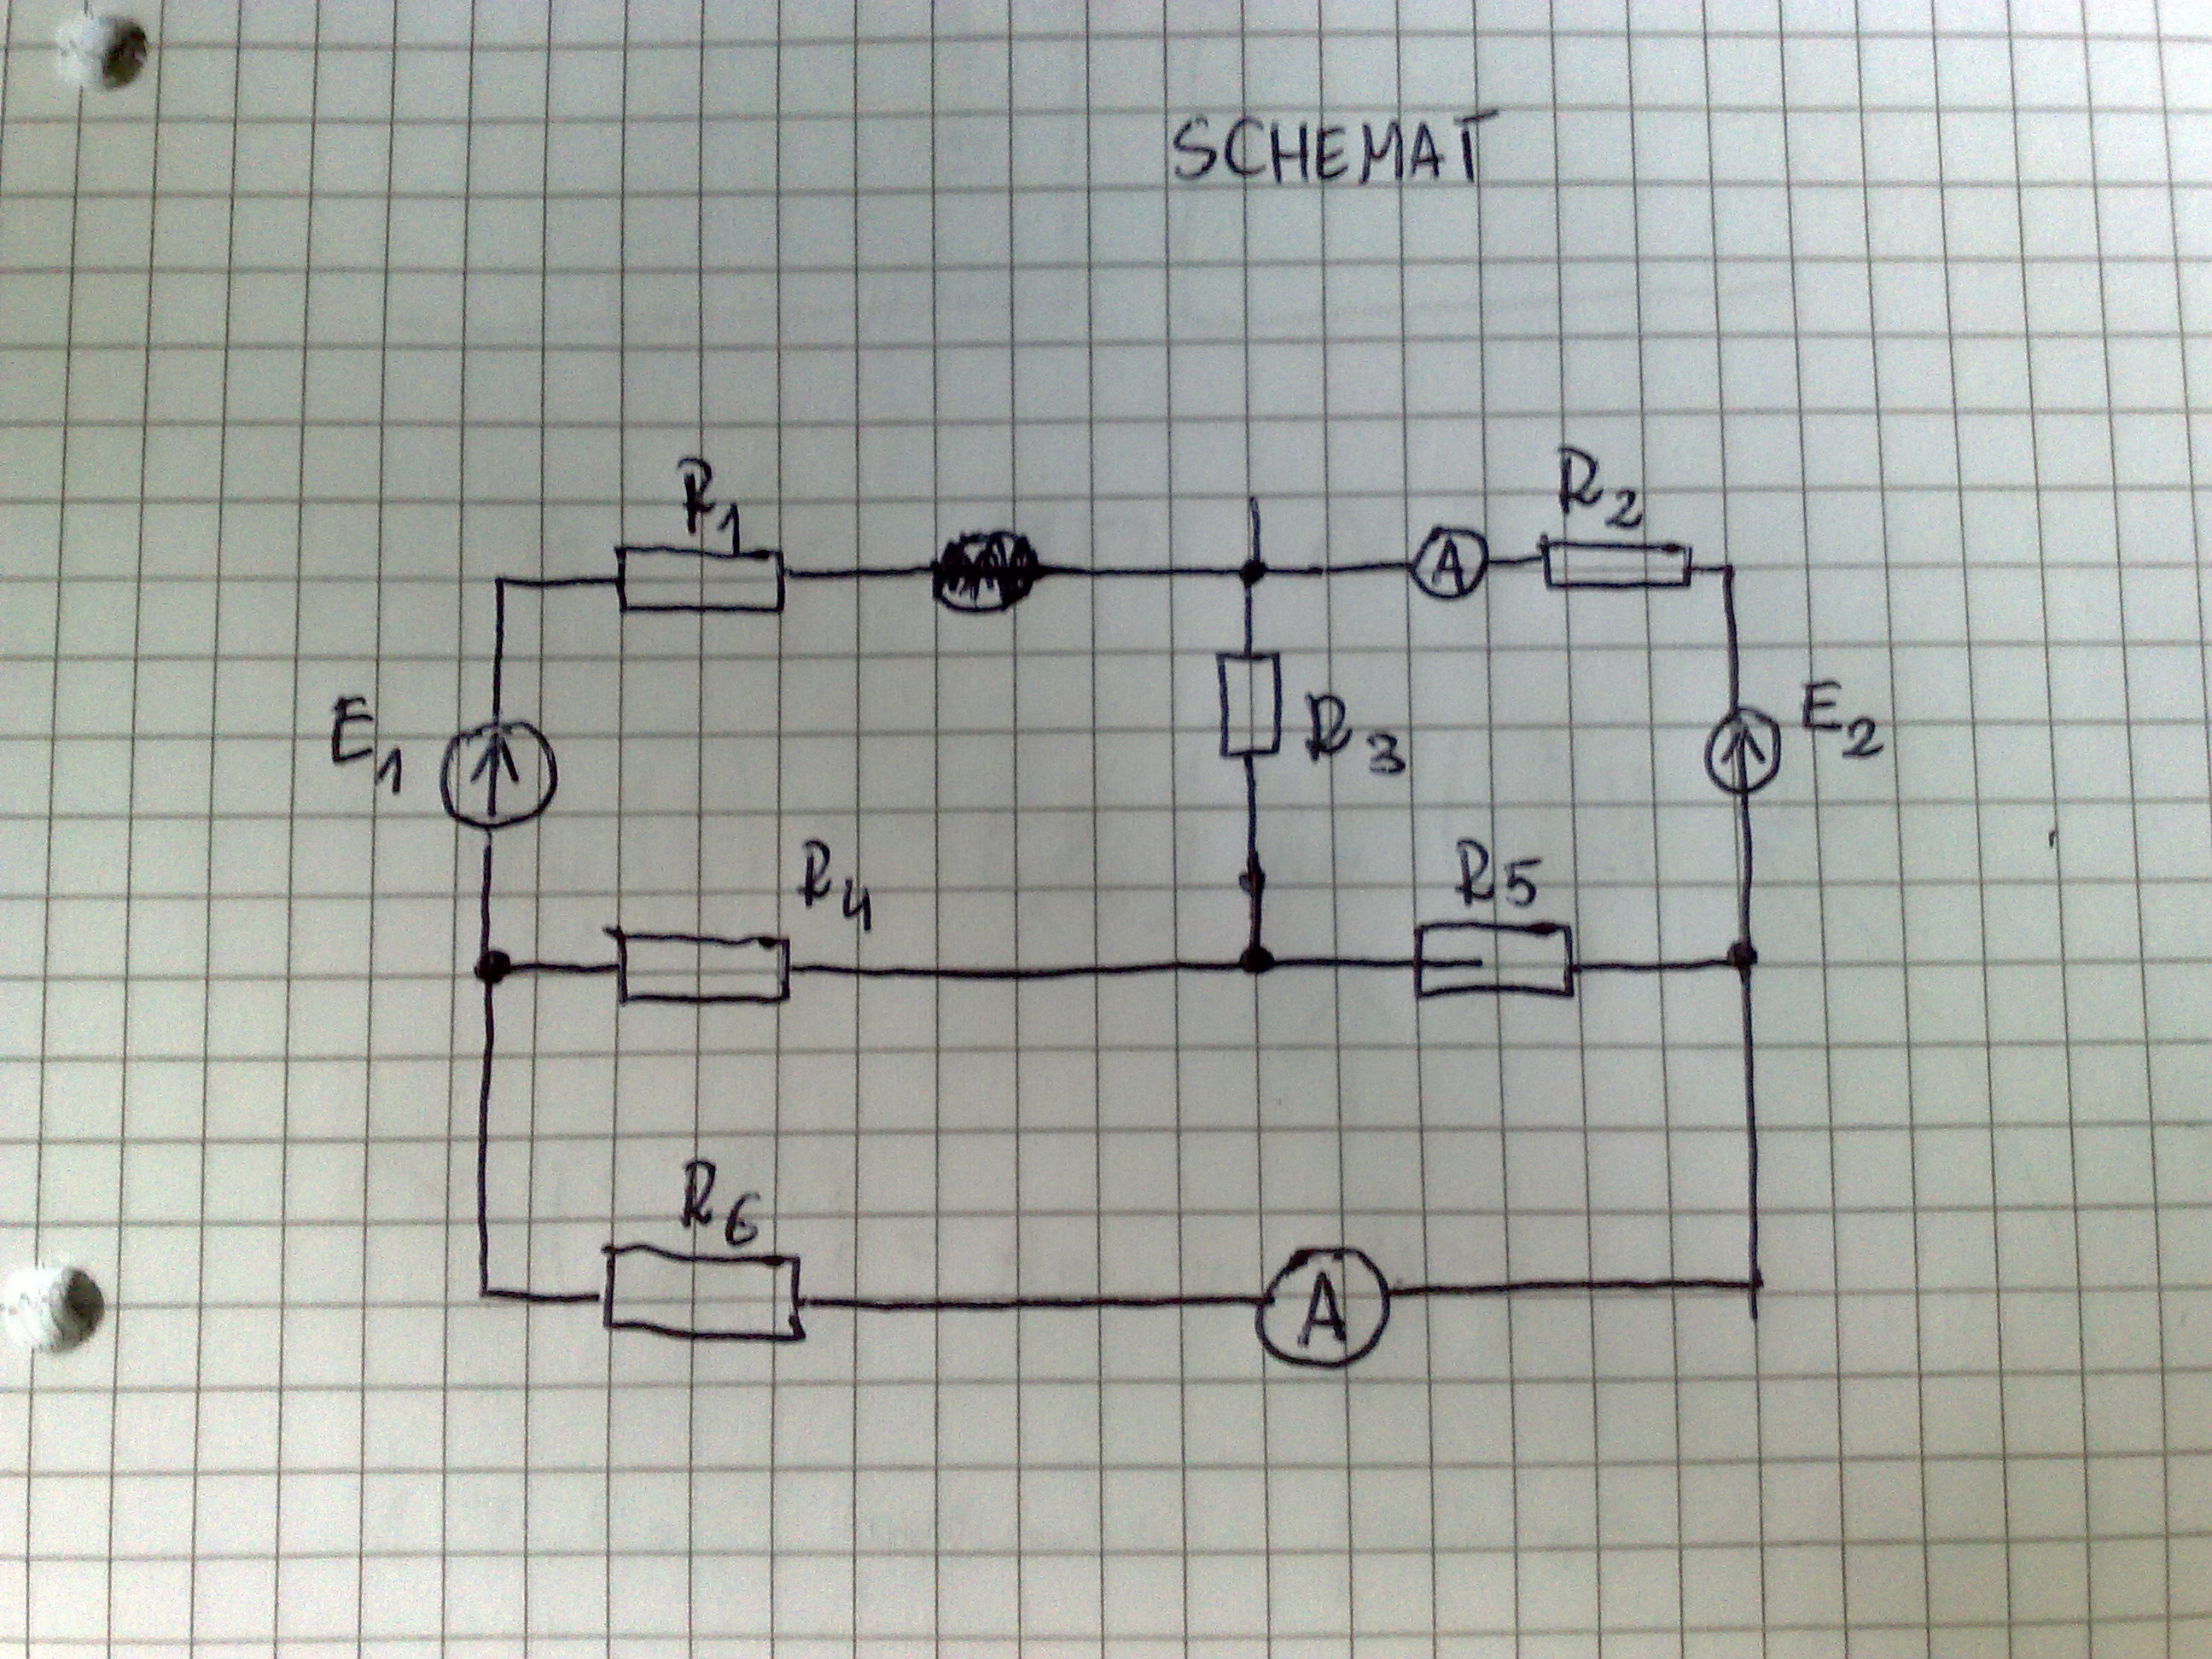 SCHEMAT
R1
R2
A
E1
R3
E2
R4
R5
R6
A